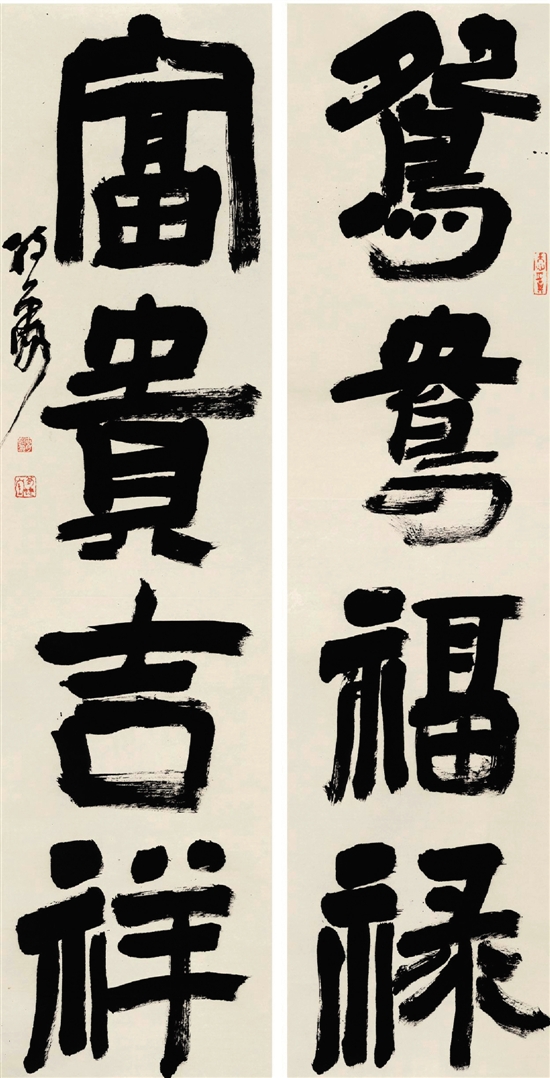 鴛鴦福禄
富貴吉祥